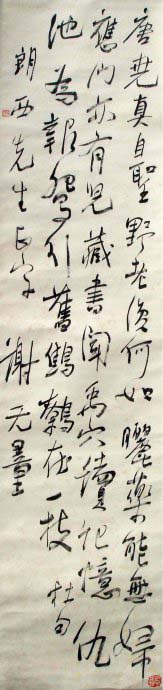 唐堯真自聖野老復何知曬藥能無婦
應門亦有兒藏書聞禹穴讀記憶仇
池為報鴛行舊鷦鷯在一枝 杜句
朗西先生正字 謝无量